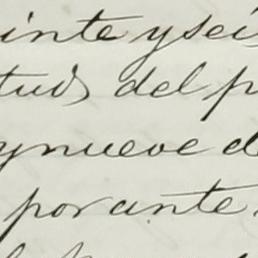 inte y seis
tud del p
y nueve de
por ante